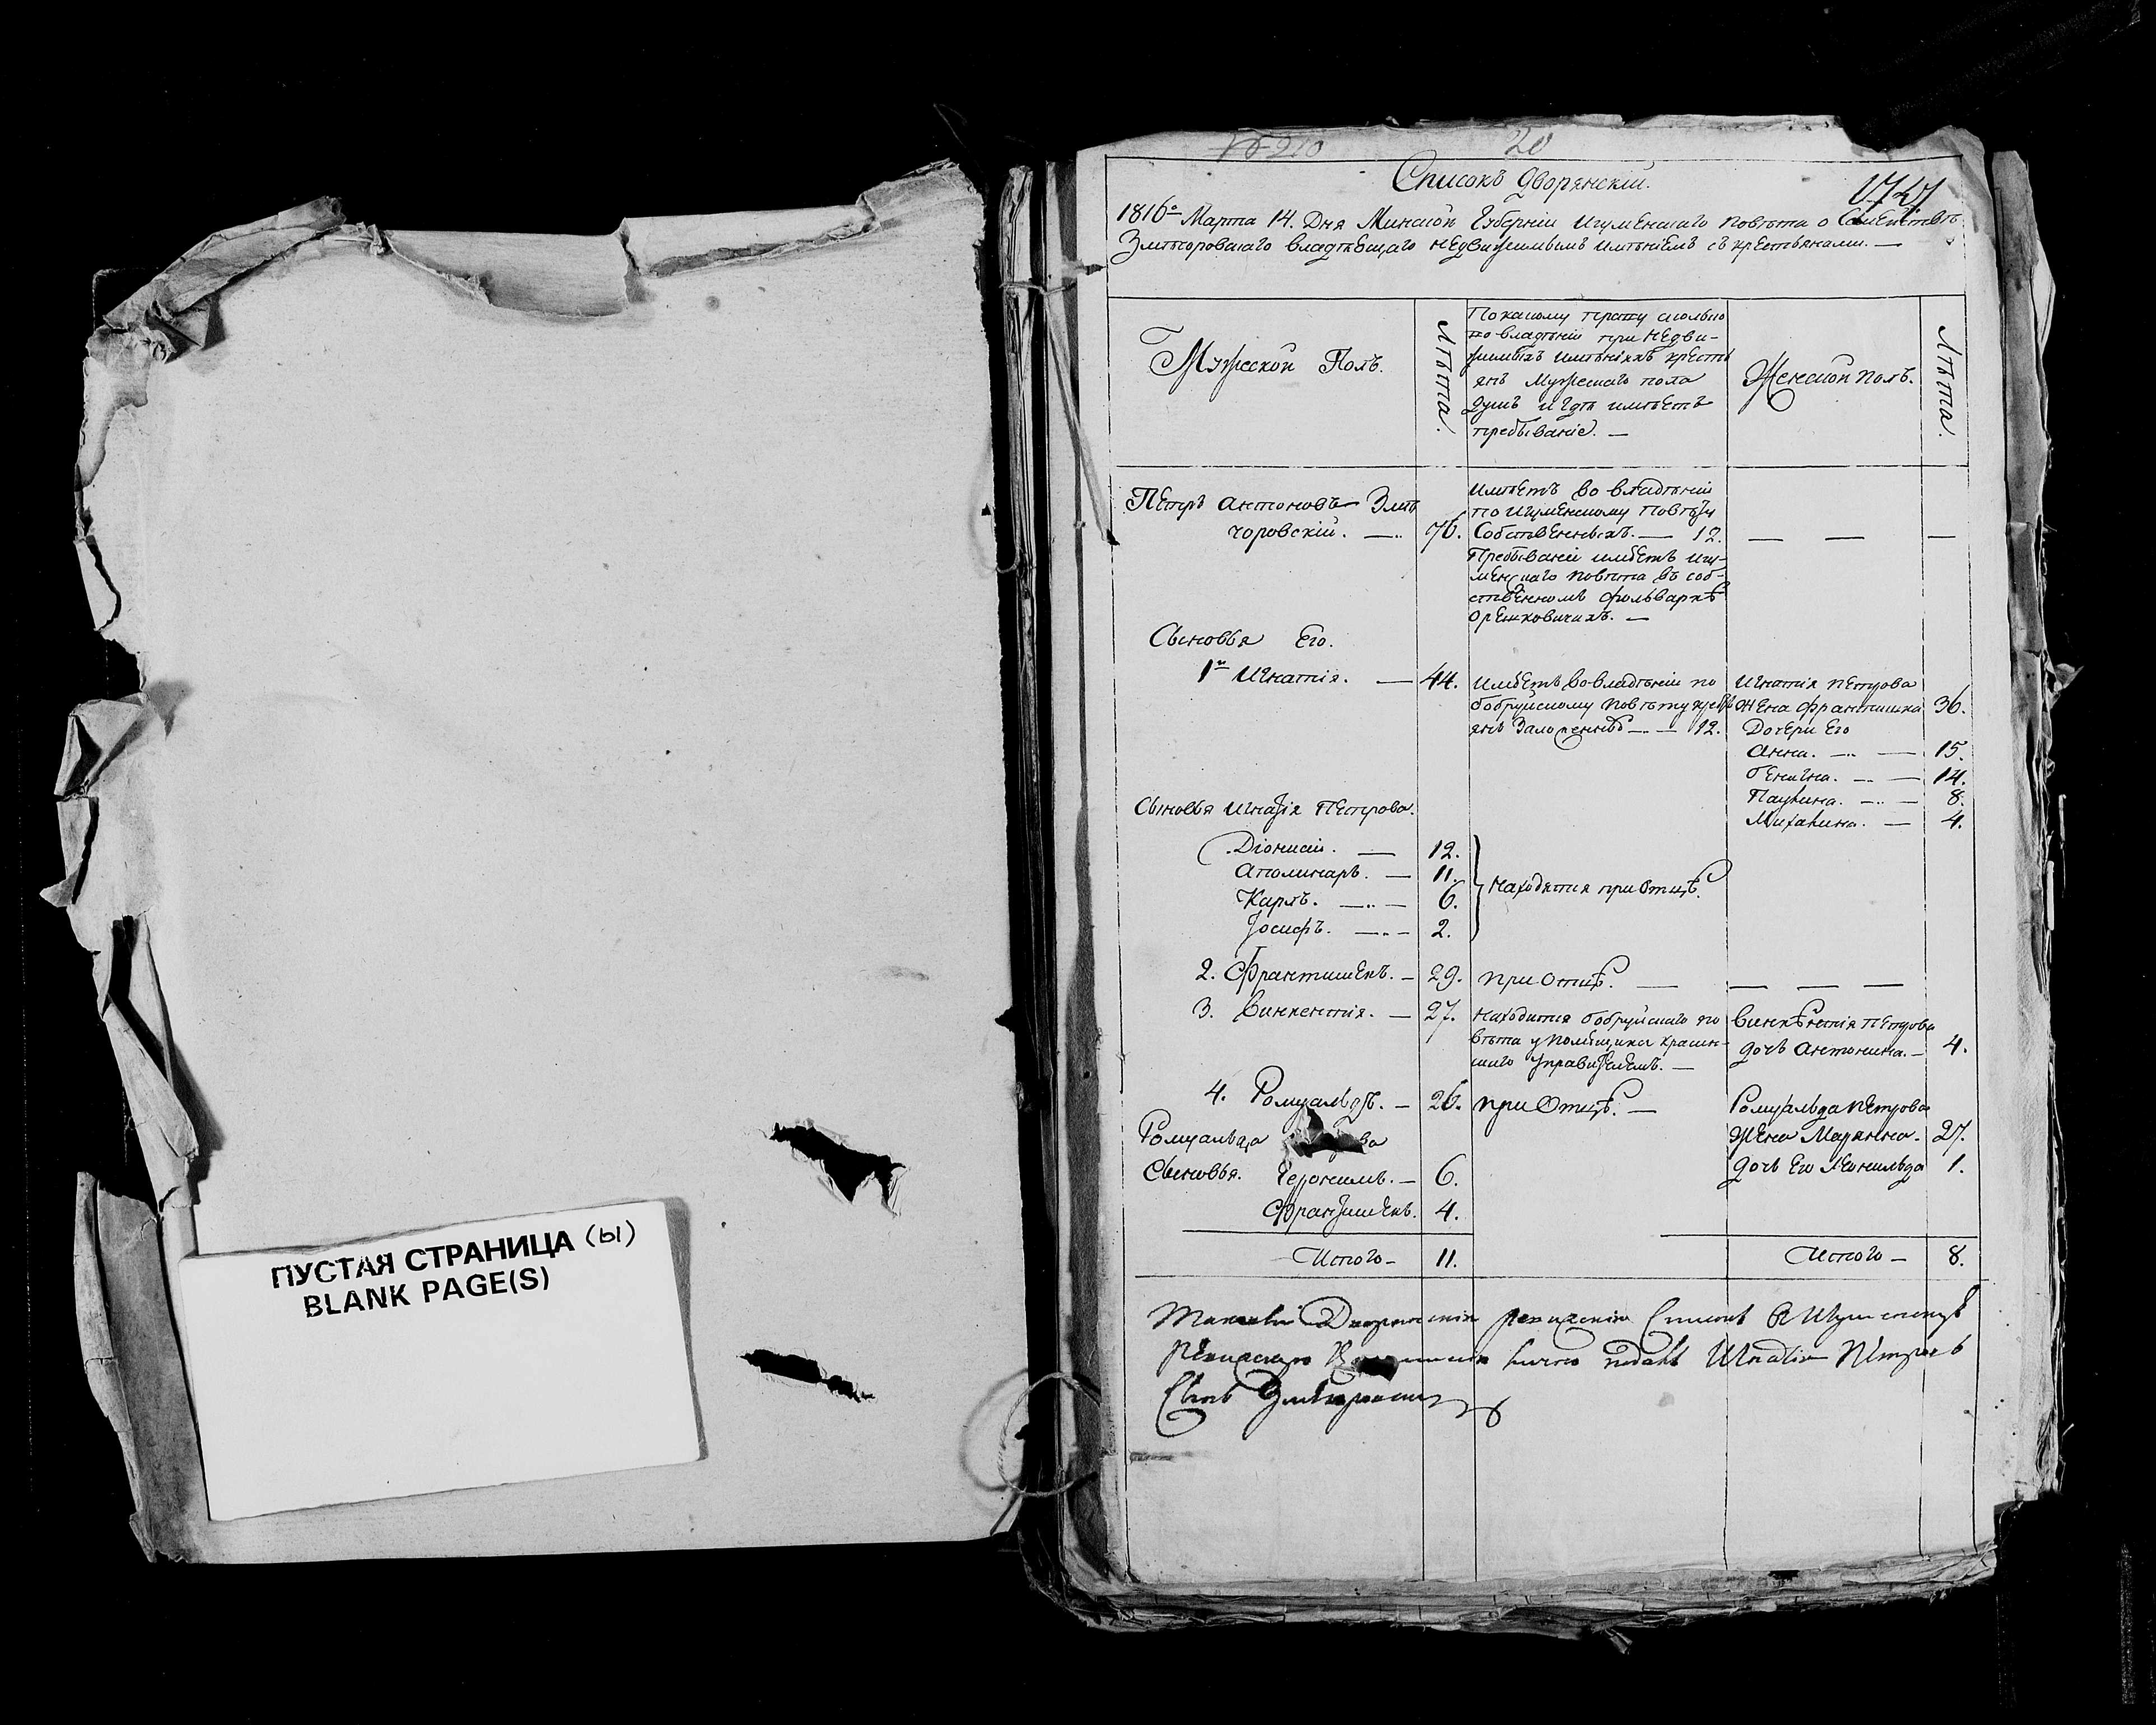 ПУСТАЯ СТРАНИЦА (ы)
BLANK PAGE(S)
№ 210
20
Списокъ Дворянскій.
1816º Марта 14. Дня Минской Губерніи Игуменскаго Повѣта о Семействѣ
Змѣчоровскаго владѣющаго недвижимымъ имѣніемъ съ крестьянами. —
Мужеской Полъ.
Лѣта.
По какому праву сколько
во владѣніи при недви-
жимыхъ имѣніяхъ кресть
янъ Мужескаго пола
душъ и гдѣ имѣетъ
пребываніе. —
Женской полъ.
Лѣта.
Петръ Антоновъ Змѣ
чоровскій. — 76.
Имѣетъ во владѣніи
по Игуменскому Повѣту
Собственныхъ. — 12.
Пребываніи имѣетъ Игу-
менскаго повѣта въ соб-
ственномъ фольваркѣ
Орешковичахъ. —
— — —
Сыновья Его.
1й Игнатія. — 44.
Имѣетъ во владѣніи по
бобруйскому повѣту крсть
янъ Заложенныхъ — 12.
Игнатія Петрова
жена Францишка 36.
Дочери Его
Анна. — 15.
Генигна. — 14.
Паулина. — 8.
Михалина. — 4.
Сыновья Игнатія Петрова.
Діонисій. — 12.
Аполинаръ. — 11.
Карлъ. — 6.
Іосифъ. — 2.
Находятся при Отцѣ.
2. Францишекъ. — 29. при Отцѣ. — — — —
3. Винкентія. — 27.
Находится бобруйскаго по
вѣта у помѣщика
управителемъ. —
Винкентія Петрова
дочь Антонина. — 4.
4. Ромуальдъ. — 26. при Отцѣ. —
Ромуальда Петрова
Жена Маріанна. 27.
дочь Его Леонильда 1.
Ромуальда
Сыновья. Іеронимъ. — 6.
Францишекъ. 4.
Итого — 11.
Итого — 8.
Таковы Дворянскія ревизскія Списокъ в Игуменскую
Ревизскую лично подалъ Игнатій Петровъ
Сынъ Змѣчоровскій